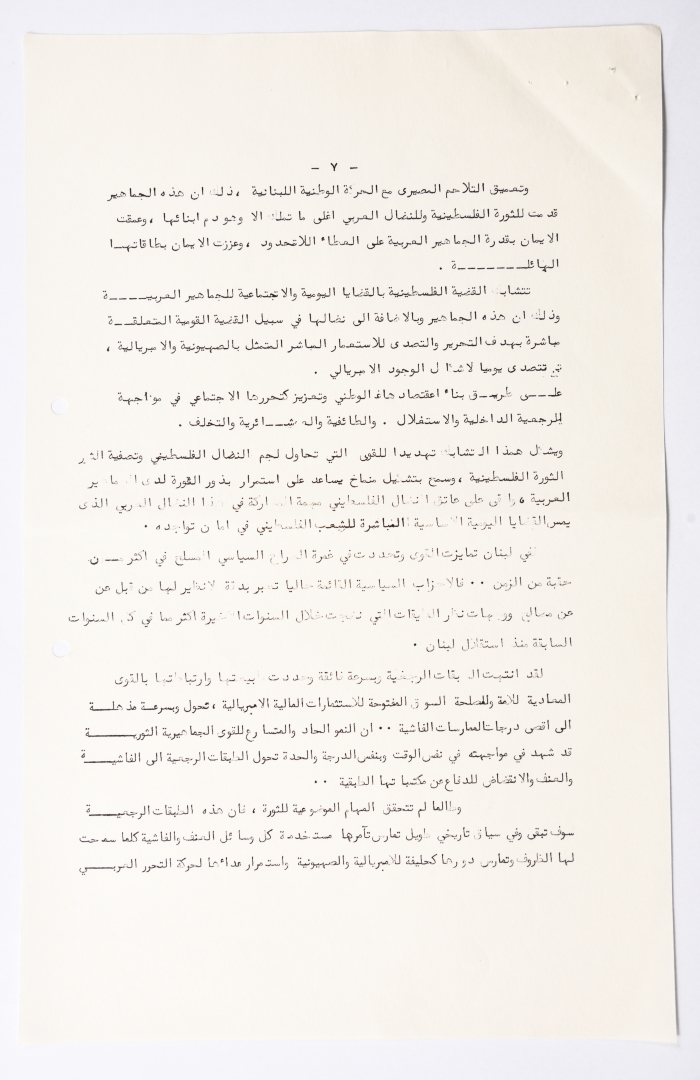 - ٧ -
وتعميق التلاحم المصيرى مع الحركة الوطنية اللبنانية ، ذلك ان هذه الجماهير
قدمت للثورة الفلسطينية وللنضال العربي اغلى ما تملك الا وهو دم ابنائها ، وعمقت
الايمان بقدرة الجماهير العربية على العطاء اللامحدود ، وعززت الايمان بطاقاتهـا
الهائلـــــــة .
تتشابك القضية الفلسطينية بالقضايا اليومية والاجتماعية للجماهير العربيــــة
وذلك ان هذه الجماهير وبالاضافة الى نضالها في سبيل القضية القومية المتعلقــة
مباشرة بهدف التحرير والتصدى للاستعمار المباشر المتمثل بالصهيونية والامبريالية ،
تتصدى يوميا لاشكال الوجود الامبريالي .
علـــى طريـــق بناء اقتصادها الوطني وتعزيز تحررها الاجتماعي في مواجهة
الرجعية الداخلية والاستغلال . والطائفية والعشـــائرية والتخلف .
ويشكل هذا التشابك تهديدا للقوى التي تحاول لجم النضال الفلسطيني وتصفية
الثورة الفلسطينية ، وسمح بتشكيل مناخ يساعد على استمرار بذور الثورة لدى الجماهير
العربية ، والقى على عاتق النضال الفلسطيني مهمة المشاركة في هذا النضال العربي الذى
يمس القضايا اليومية الاساسية المباشرة للشعب الفلسطيني في اماكن تواجده .
في لبنان تمايزت القوى وتحددت في غمرة الصراع السياسي المسلح في اكثر مــن
حقبة من الزمن .. فالاحزاب السياسية القائمة حاليا تعبر بدقة لا نظير لها من قبل عن
عن مصالح ووجهات نظر الطبقات التي نضجت خلال السنوات الاخيرة اكثر مما في كل السنوات
السابقة منذ استقلال لبنان .
لقد انتهت الطبقات الرجعية وبسرعة فائقة وحددت طبيعتها وارتباطاتها بالقوى
المعادية للامة ولمصلحة السوق المفتوحة للاستثمارات المالية الامبريالية ، تحول وبسرعة مذهلــة
الى اقصى درجات الممارسات الفاشية .. ان النمو الحاد والمتسارع للقوى الجماهيرية الثوريـــة
قد شهد في مواجهته في نفس الوقت وبنفس الدرجة والحدة تحول الطبقات الرجعية الى الفاشيــــة
والعنف والانقضاض للدفاع عن مكتسباتها الطبقية ..
وطالما لم تتحقق المهام الموضوعية للثورة ، فان هذه الطبقات الرجعيـــة
سوف تبقى وفي سياق تاريخي طويل تمارس تآمرها مستخدمة كل وسائل العنف والفاشية كلما سمحت
لها الظروف وتمارس دورها كحليفة للامبريالية والصهيونية واستمرار عدائها لحركة التحرر العربـــي